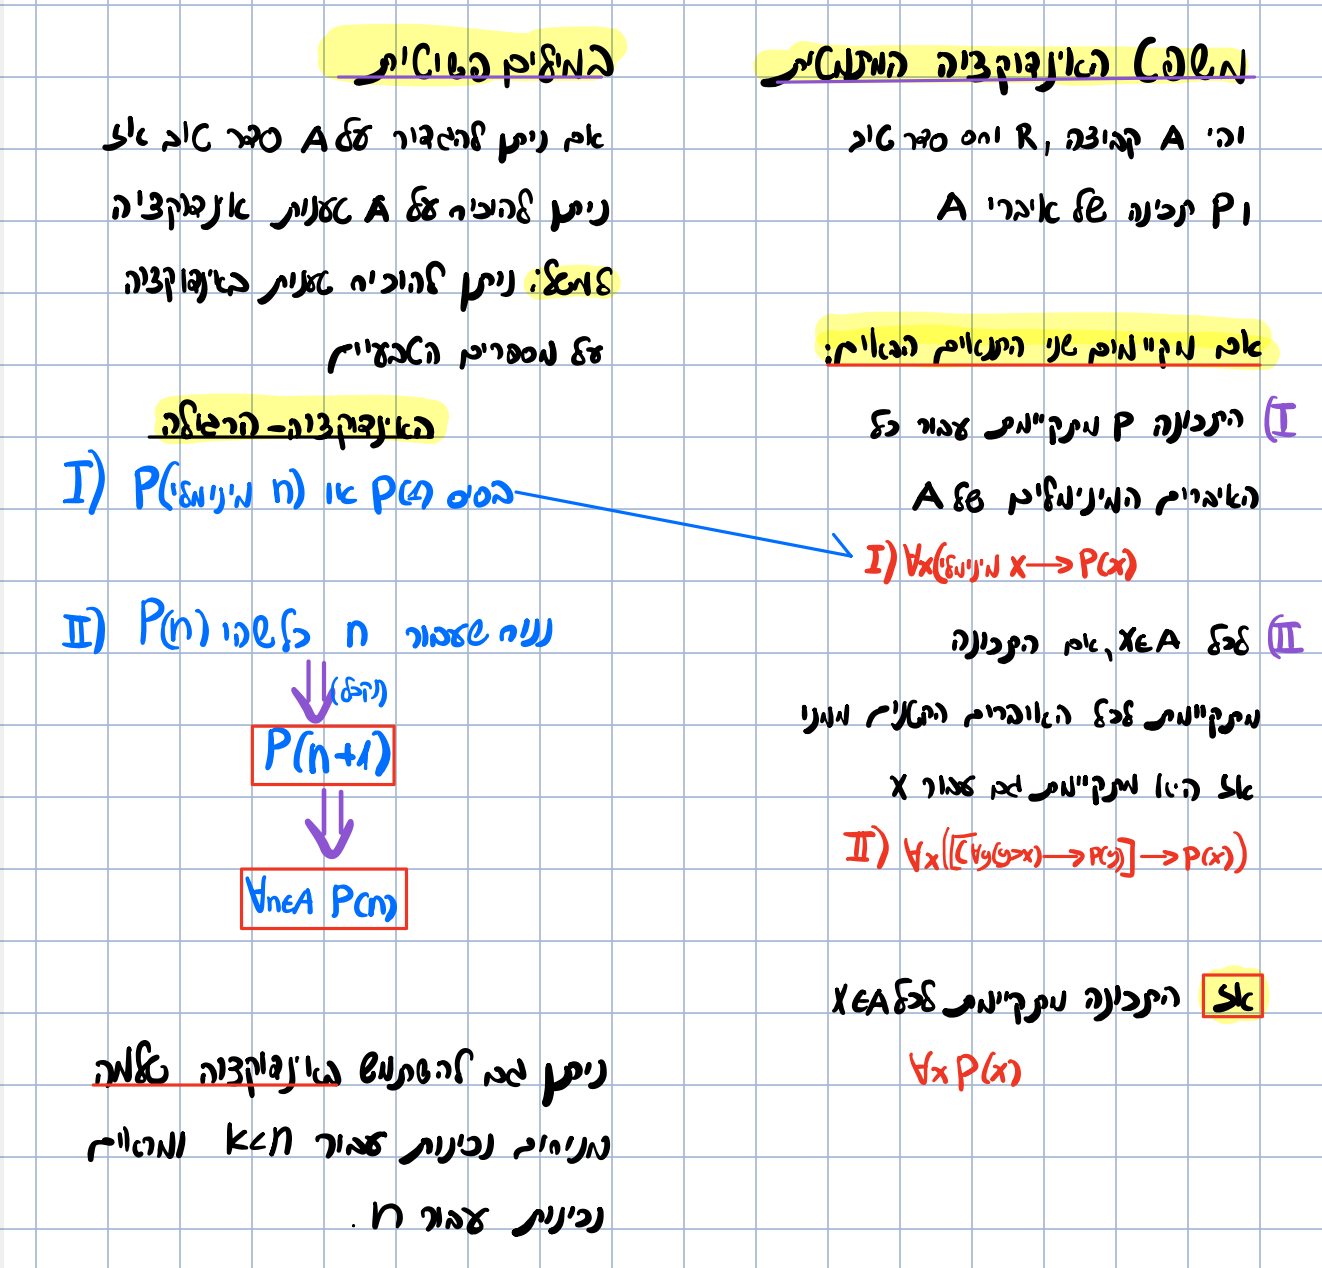 משפט האינדוקציה המתמטית
יהי A קבוצה, R יחס סדר טוב
ו P תכונה של איברי A
אם מקיימים שני התנאים הבאים:
I) התכונה P מתקיימת עבור כל
האיברים המינימלים של A
I) ∀x(מינימלי x → P(x)
II) לכל x∈A, אם התכונה
מתקיימת לכל האיברים הקטנים ממנו
אז היא מתקיימת גם עבור x
II) ∀x([∀y(y>x) → P(y)] → P(x))
אז התכונה מתקיימת לכל x∈A
∀x P(x)
במילים פשוטות
אם ניתן להגדיר על A סדר טוב אז
ניתן להוכיח על A טענות אנדוקציה
למשל: ניתן להוכיח טענות באינדוקציה
על מספרים הטבעיים
האינדוקציה - הרגילה
I) בסיס P(1) או P(מינימלי n)
II) נניח שעבור n כלשהו P(n)
(נקבל)
P(n+1)
∀n∈A P(n)
ניתן גם להשתמש באינדוקציה שלמה
מניחים נכונות עבור k<n ומראים
נכונות עבור n.